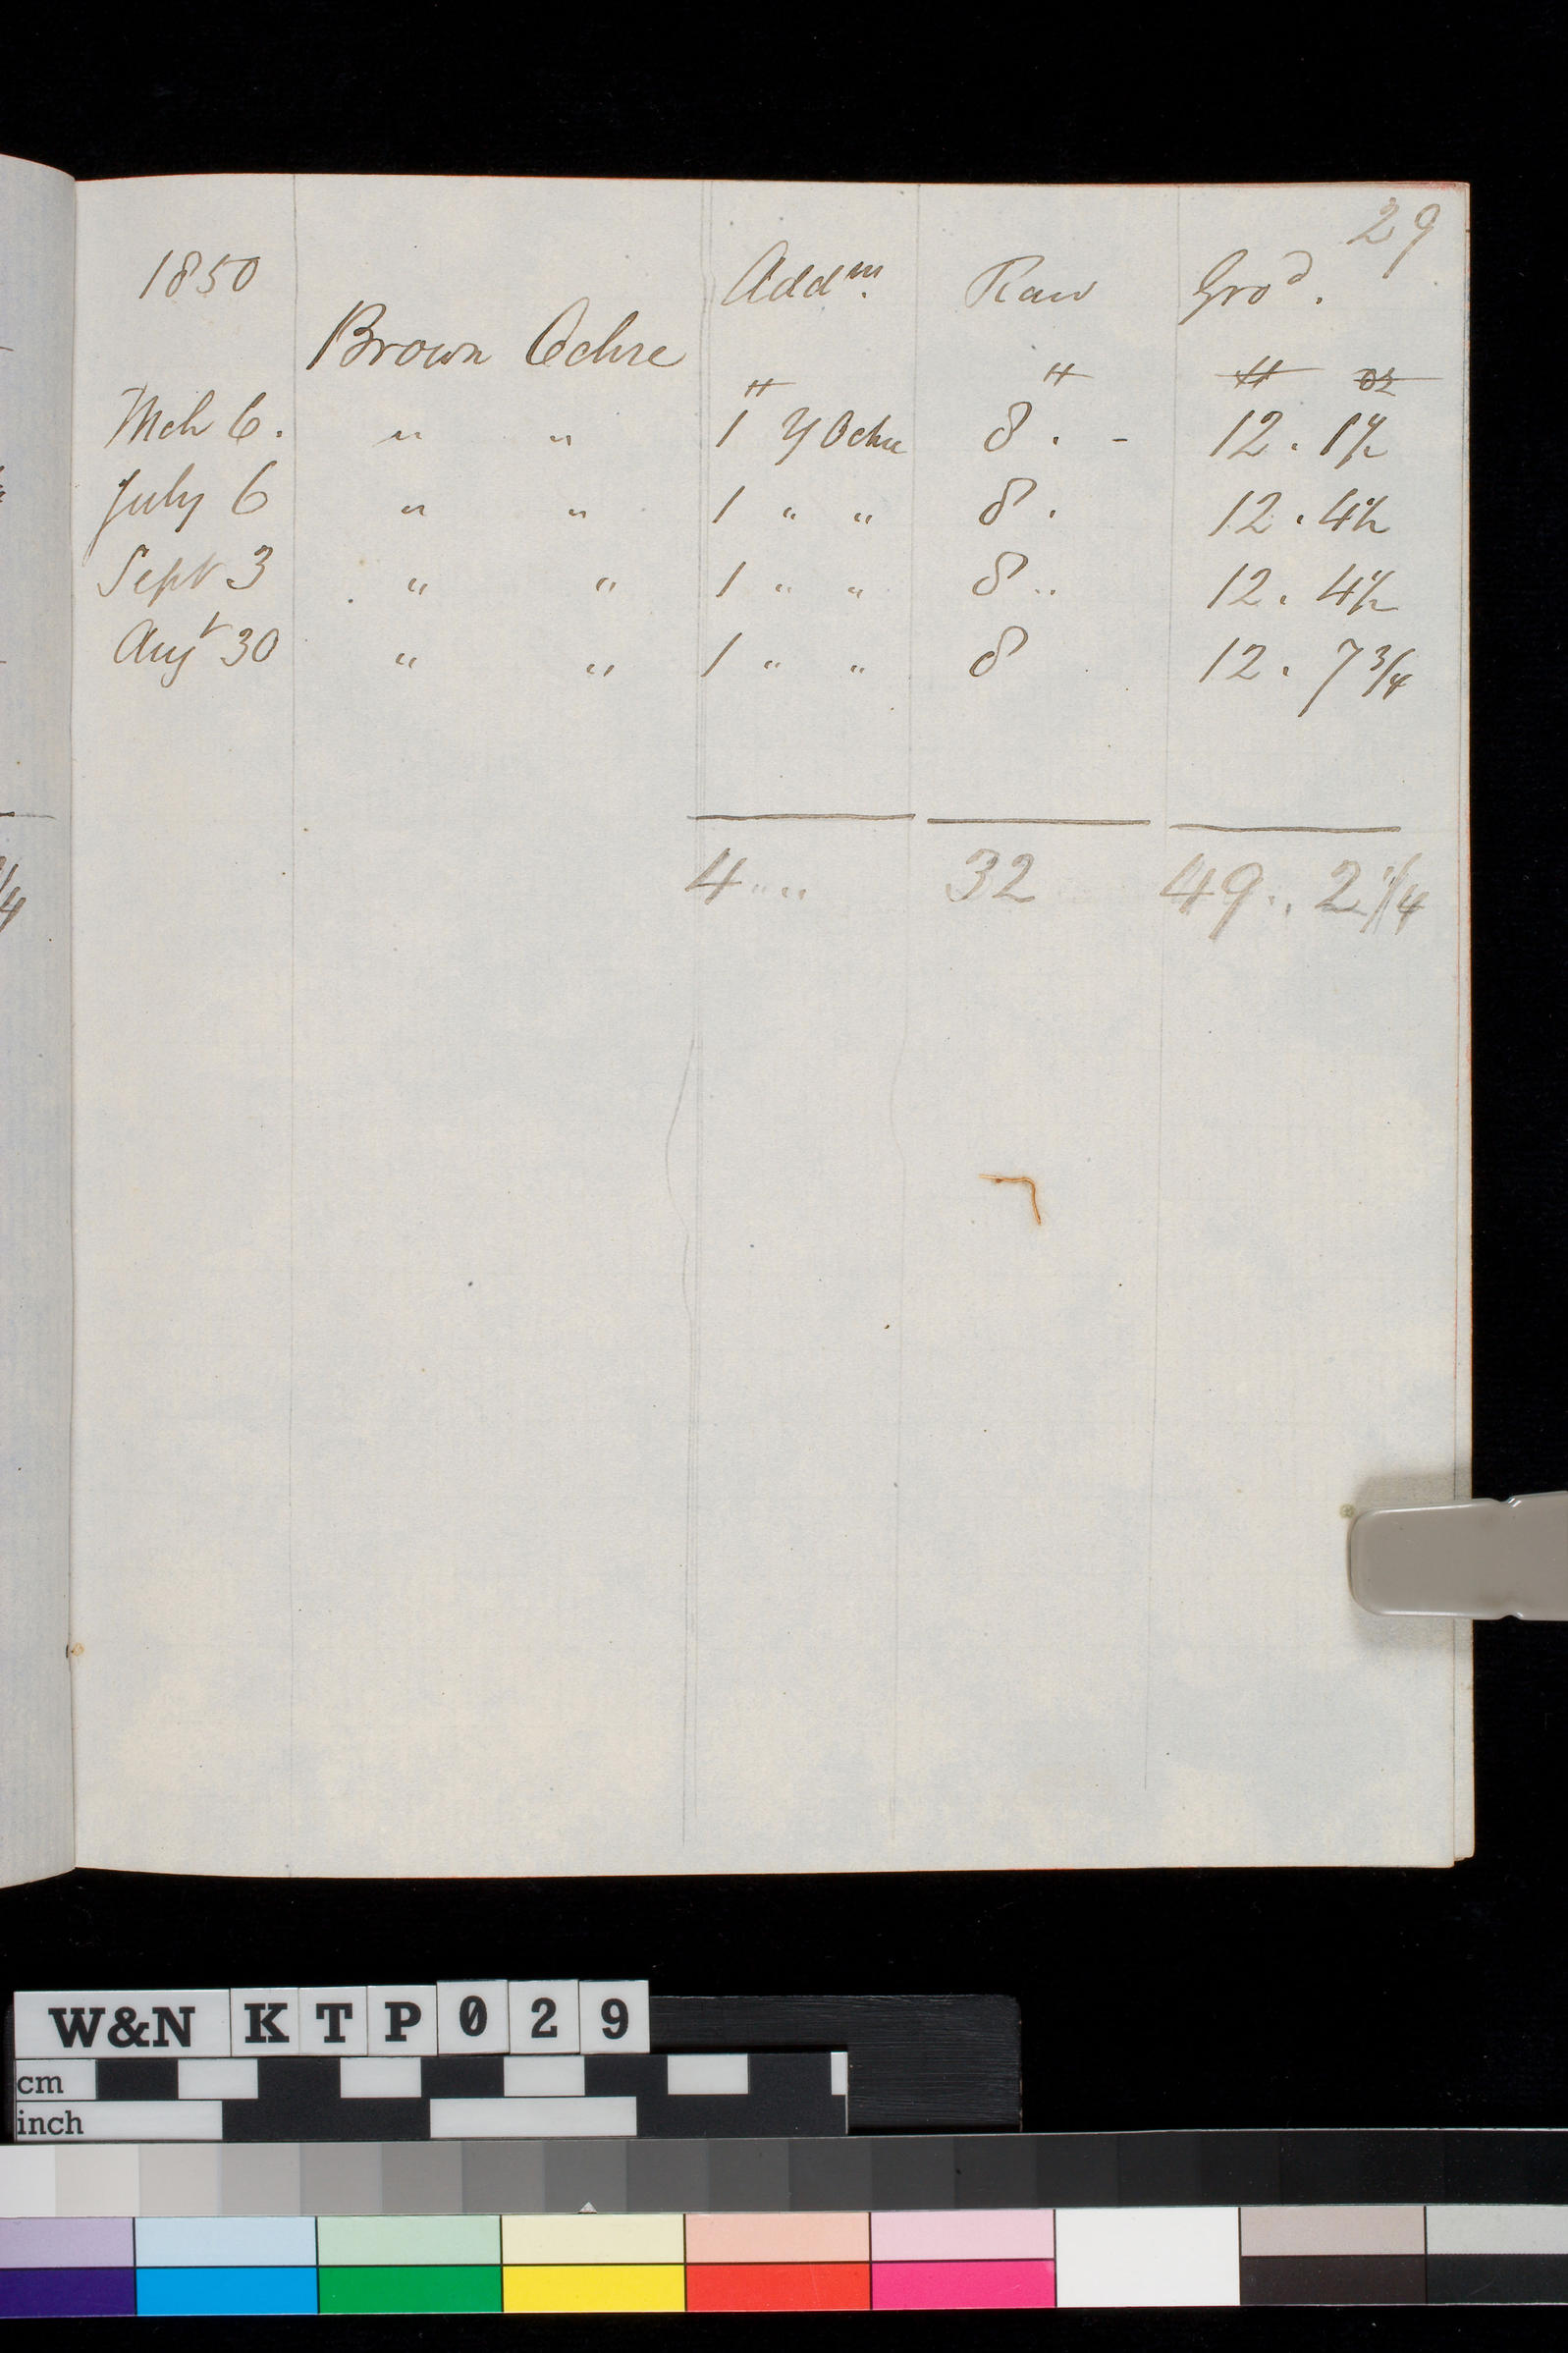 29
1850 Addm. Raw Grod.
Brown Ochre
lb lb lb oz
Mch 6. " " 1 Y Ochre 8 . - 12 . 1 1/2
July 6 " " 1 " " 8 . 12 . 4 1/2
Sept 3 " " 1 " " 8 .. 12 . 4 1/2
Augt 30 " " 1 " " 8 12 . 7 3/4
4 " " 32 49 .. 2 1/4
/4
W&N KTP029
cm
inch